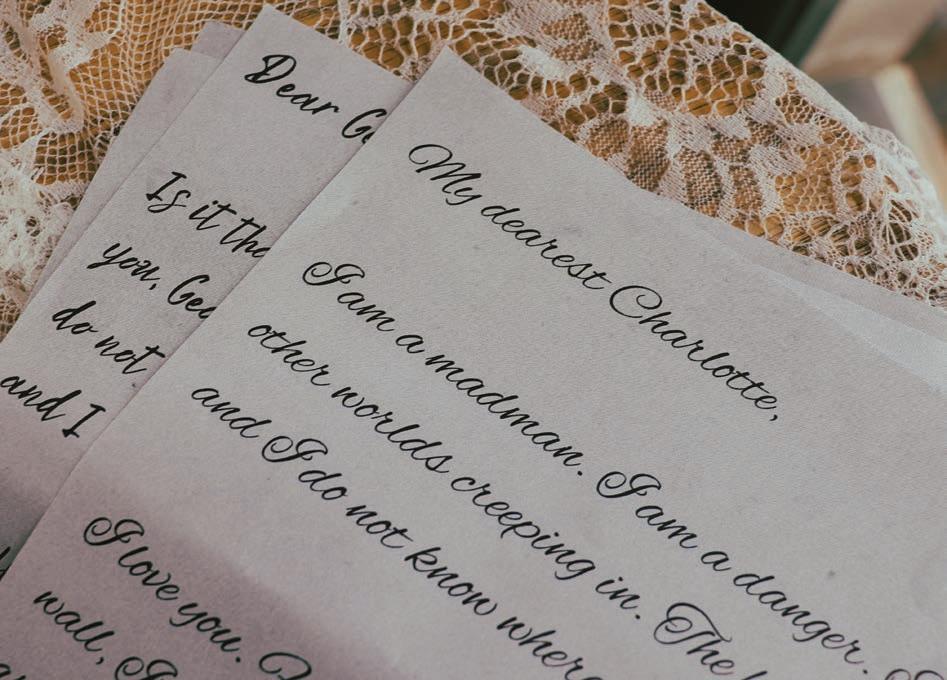 Dear
Is it
you,
do not
and I
My dearest Charlotte,
I am a madman. I am a danger.
other worlds creeping in. The
and I do not know
I love you.
wall,